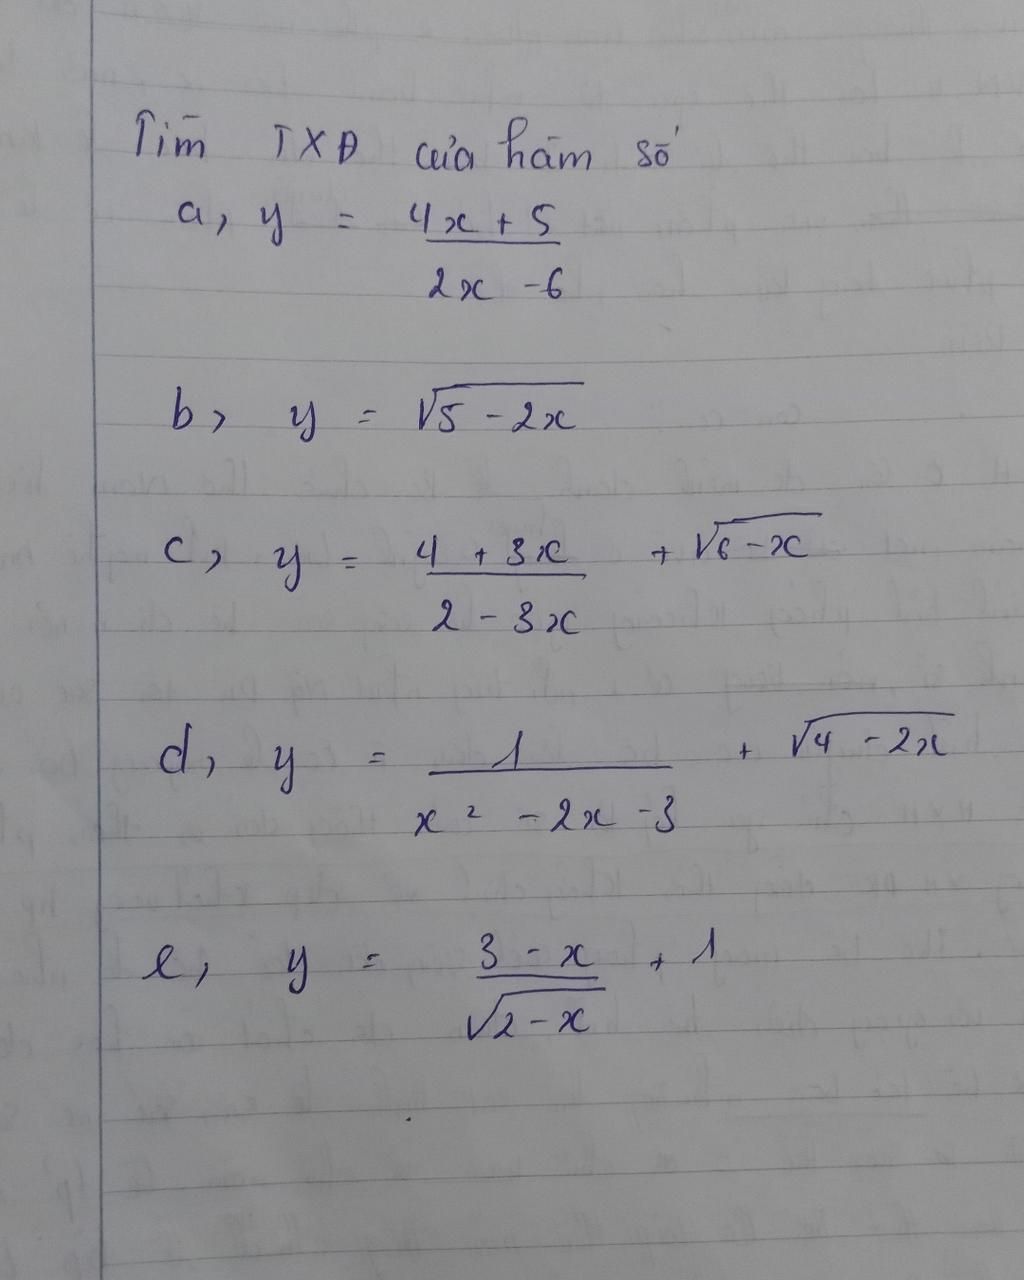 Tìm TXĐ của hàm số
a, y = \frac{4x + 5}{2x - 6}
b, y = \sqrt{5 - 2x}
c, y = \frac{4 + 3x}{2 - 3x} + \sqrt{6 - x}
d, y = \frac{1}{x^2 - 2x - 3} + \sqrt{4 - 2x}
e, y = \frac{3 - x}{\sqrt{2 - x}} + 1